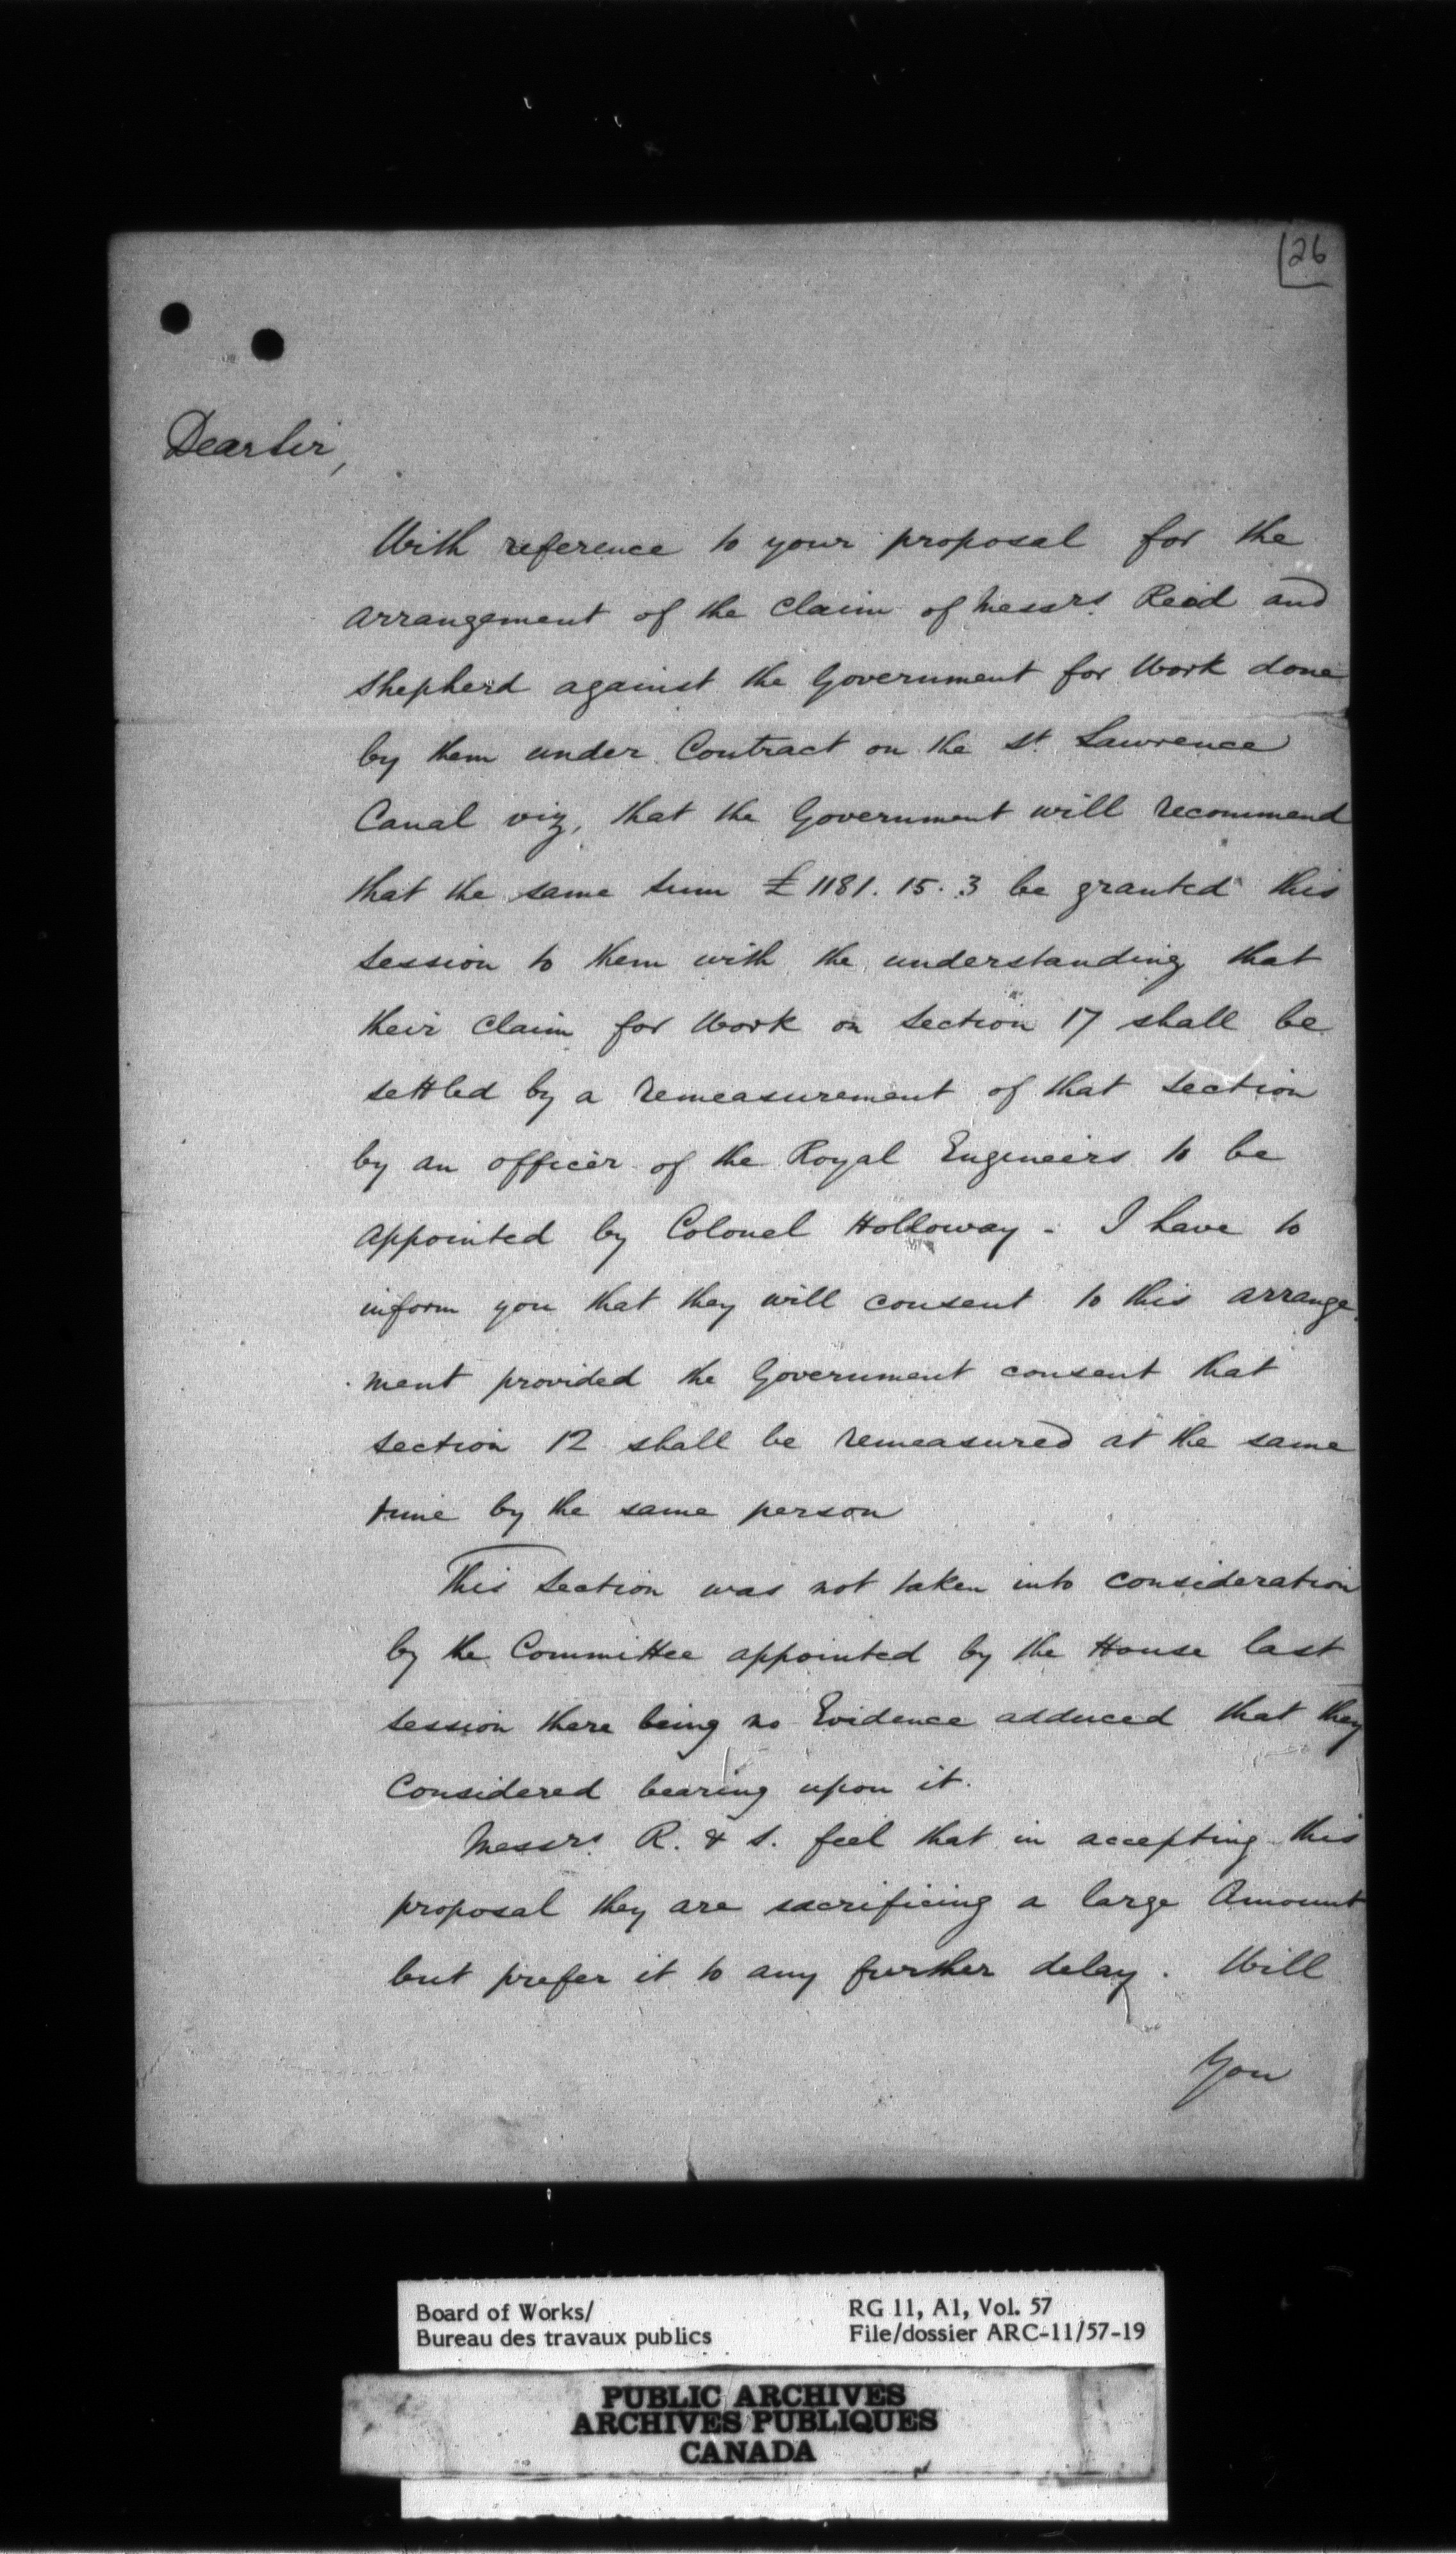 126
Dear Sir,
With reference to your proposal for the
arrangement of the Claim of Messrs Reid and
Shepherd against the Government for Work done
by them under Contract on the St Lawrence
Canal viz, that the Government will recommend
that the same sum £1181.15.3 be granted this
session to them with the understanding that
their Claim for Work on Section 17 shall be
settled by a remeasurement of that section
by an officer of the Royal Engineers to be
appointed by Colonel Holloway - I have to
inform you that they will consent to this arrange
ment provided the Government consent that
section 12 shall be remeasured at the same
time by the same person
This Section was not taken into consideration
by the Committee appointed by the House last
session there being no Evidence adduced that they
Considered bearing upon it.
Messrs R. & S. feel that in accepting this
proposal they are sacrificing a large Amount
but prefer it to any further delay. Will
You
Board of Works/
Bureau des travaux publics
RG 11, A1, Vol. 57
File/dossier ARC-11/57-19
PUBLIC ARCHIVES
ARCHIVES PUBLIQUES
CANADA